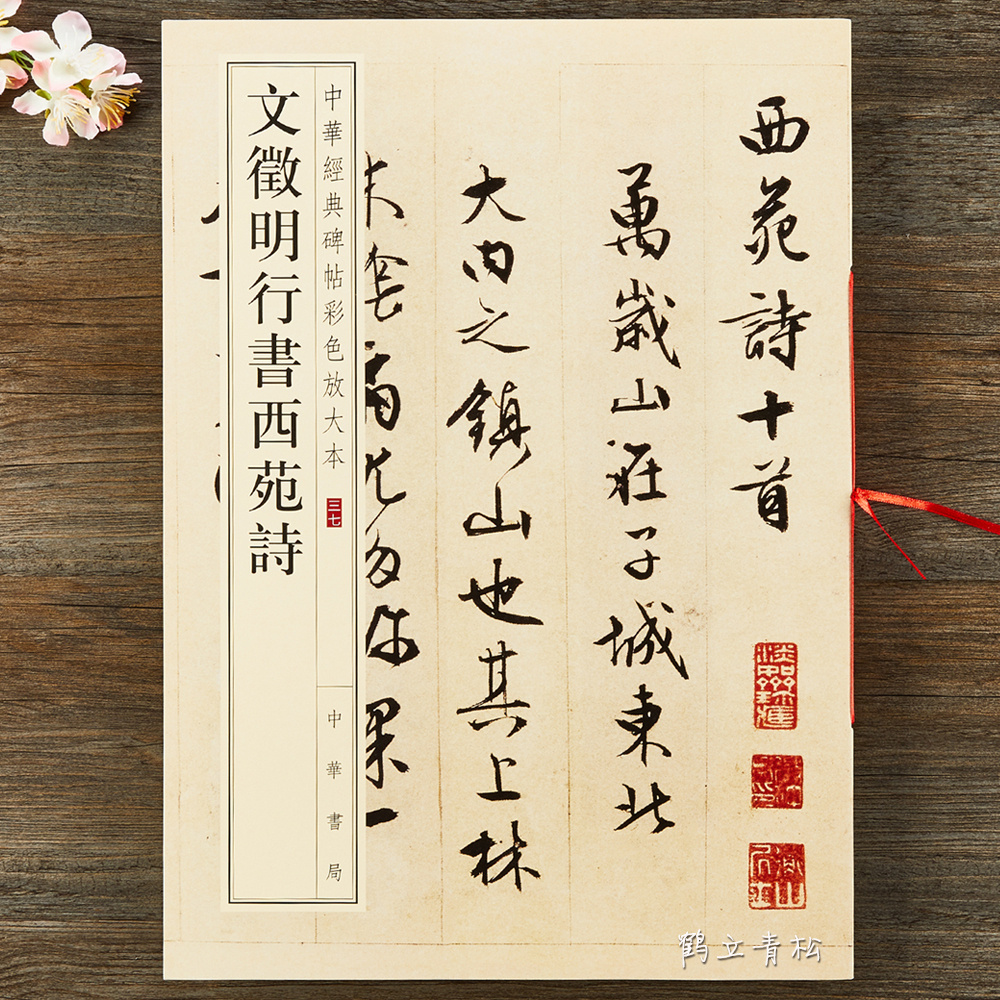 西苑詩十首
萬歲山在子城東北
大内之鎮山也其上林
木套
果一
中華經典碑帖彩色放大本
三七
中華書局
文徵明行書西苑詩
鶴立青松